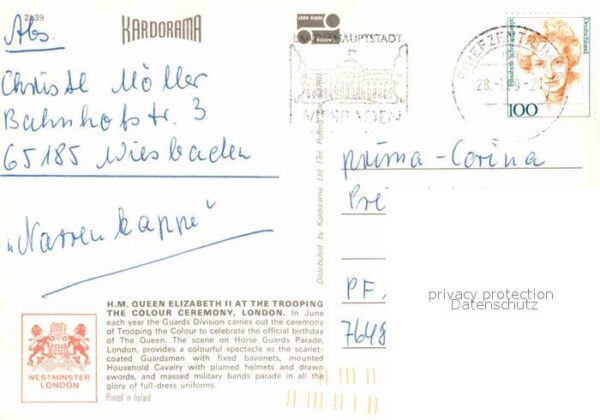 2839
KARDORAMA
JOHN HINDE
LANDESHAUPTSTADT
WIESBADEN
BRIEFZENTRUM
Deutschland
100
Abs.
Christel Möller
Bahnhofstr. 3
65185 Wiesbaden
„Narrenkappe"
prima-Corina
PF,
7648
privacy protection
Datenschutz
Distributed by Kardorama Ltd
H.M. QUEEN ELIZABETH II AT THE TROOPING
THE COLOUR CEREMONY, LONDON. In June
each year the Guards Division carries out the ceremony
of Trooping the Colour to celebrate the official birthday
of The Queen. The scene on Horse Guards Parade,
London, provides a colourful spectacle as the scarlet-
coated Guardsmen with fixed bayonets, mounted
Household Cavalry with plumed helmets and drawn
swords, and massed military bands parade in all the
glory of full-dress uniforms.
Printed in Ireland
WESTMINSTER
LONDON